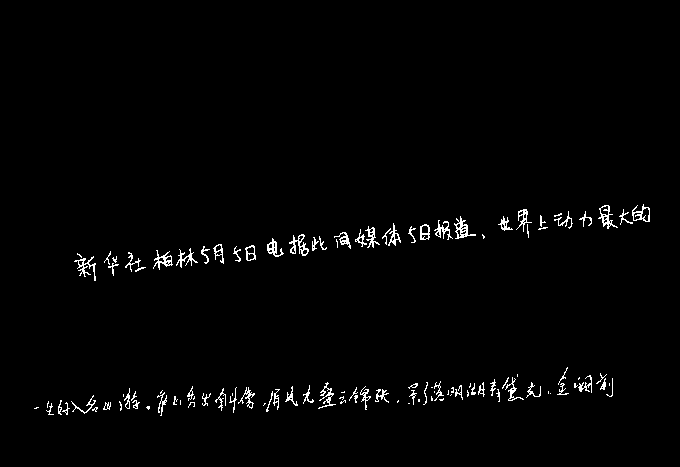 新华社柏林5月5日电据此间媒体5日报道、世界上动力最大的
一生好入名山游。庐山秀出南斗傍,屏风九叠云锦张,影落明湖青黛光,金阙前